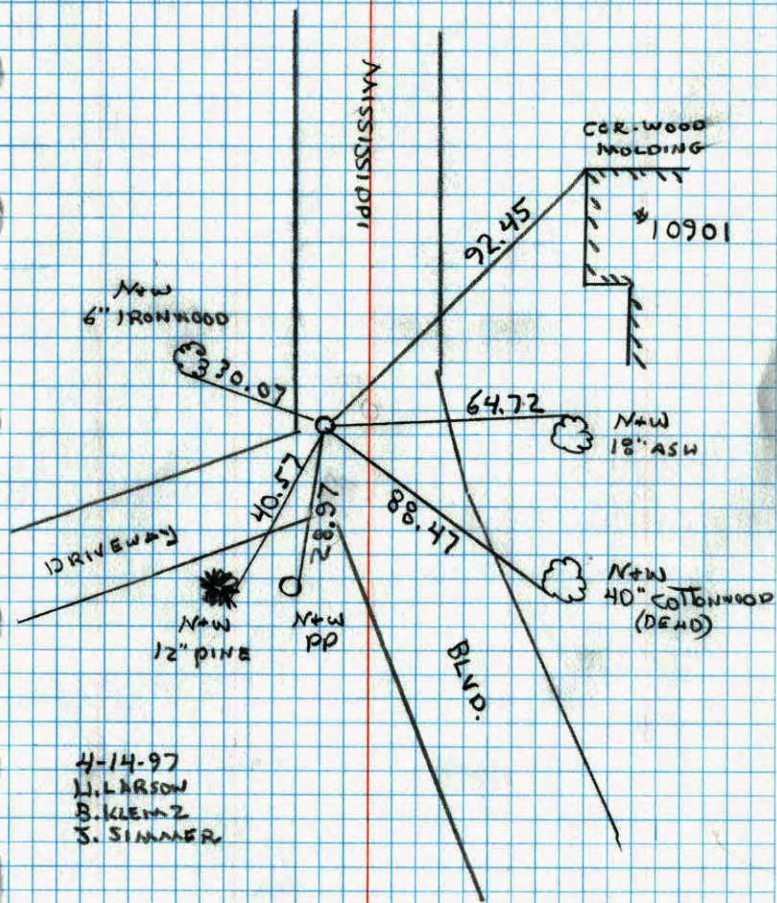 MISSISSIPPI
COR. WOOD
MOLDING
#10901
92.45
N+W
6" IRONWOOD
30.07
64.72
N+W
18" ASH
40.57
28.97
88.47
DRIVEWAY
N+W
12" PINE
N+W
PP
N+W
40" COTTONWOOD
(DEAD)
BLVD.
4-14-97
W. LARSON
B. KLEMZ
J. SIMMER